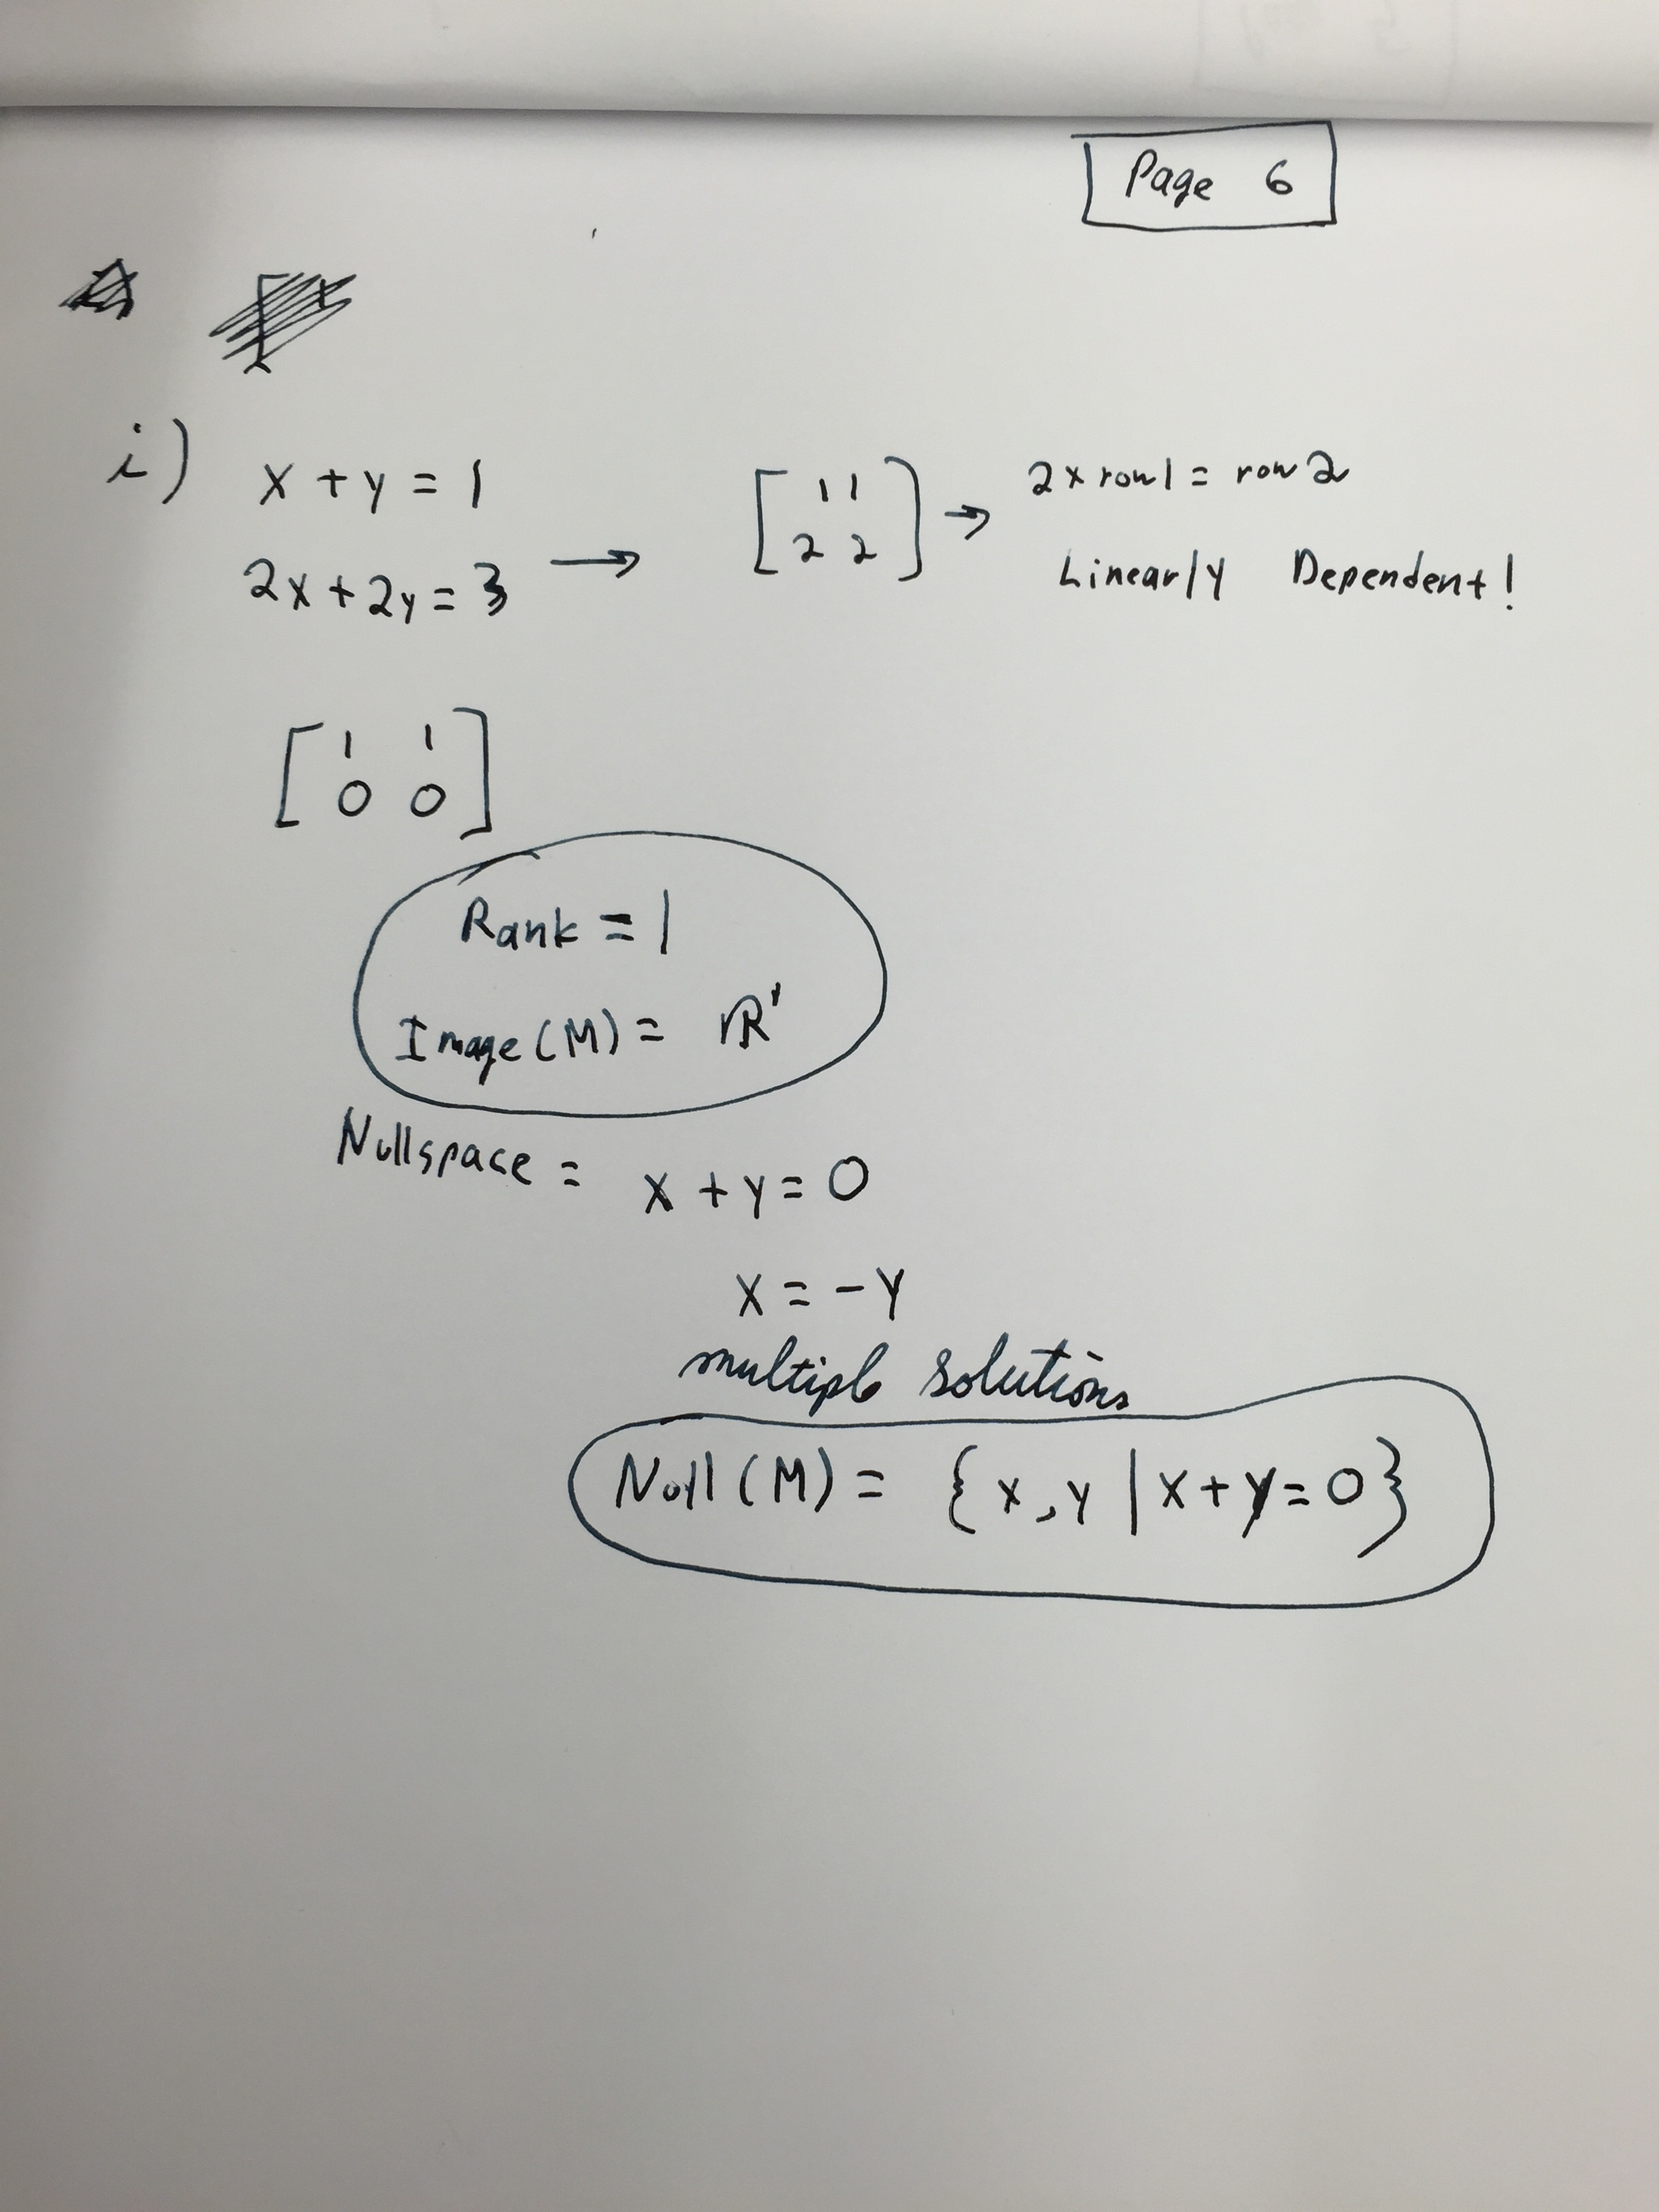 Page 6
i)
x + y = 1
2x + 2y = 3 → [1 1
2 2] → 2 x row1 = row 2
Linearly Dependent!
[1 1
0 0]
Rank = 1
Image (M) = ℝ¹
Nullspace = x + y = 0
x = -y
multiple solutions
Null (M) = {x, y | x + y = 0}